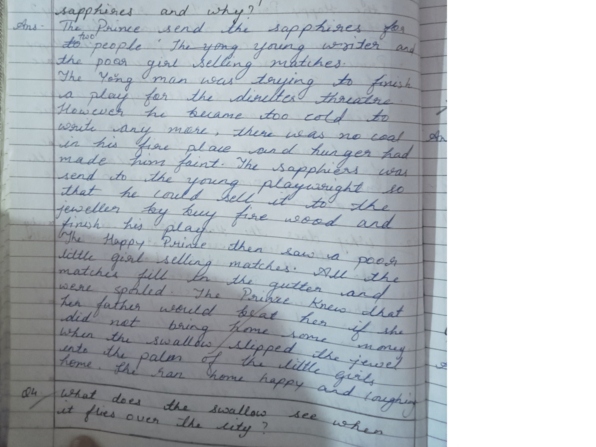 sapphires and why?
Ans. The Prince send the sapphires for
to two people. The yong young writer and
the poor girl selling matches.
The Yong man was trying to finish
a play for the director threatre
However he became too cold to
write any more, there was no coal
in his fire place and hunger had
made him faint. The sapphiers was
send to the young playwright so
that he could sell it to the
jeweller by buy fire wood and
finish his play.
The Happy Prince then saw a poor
little girl selling matches. All the
matches fill in the gutter and
were spoiled. The Prince knew that
her father would beat her if she
did not bring home some money
when the swallow slipped the jewel
into the palm of the little girls
home. She ran home happy and laughing
Q4 What does the swallow see when
it flies over the city?